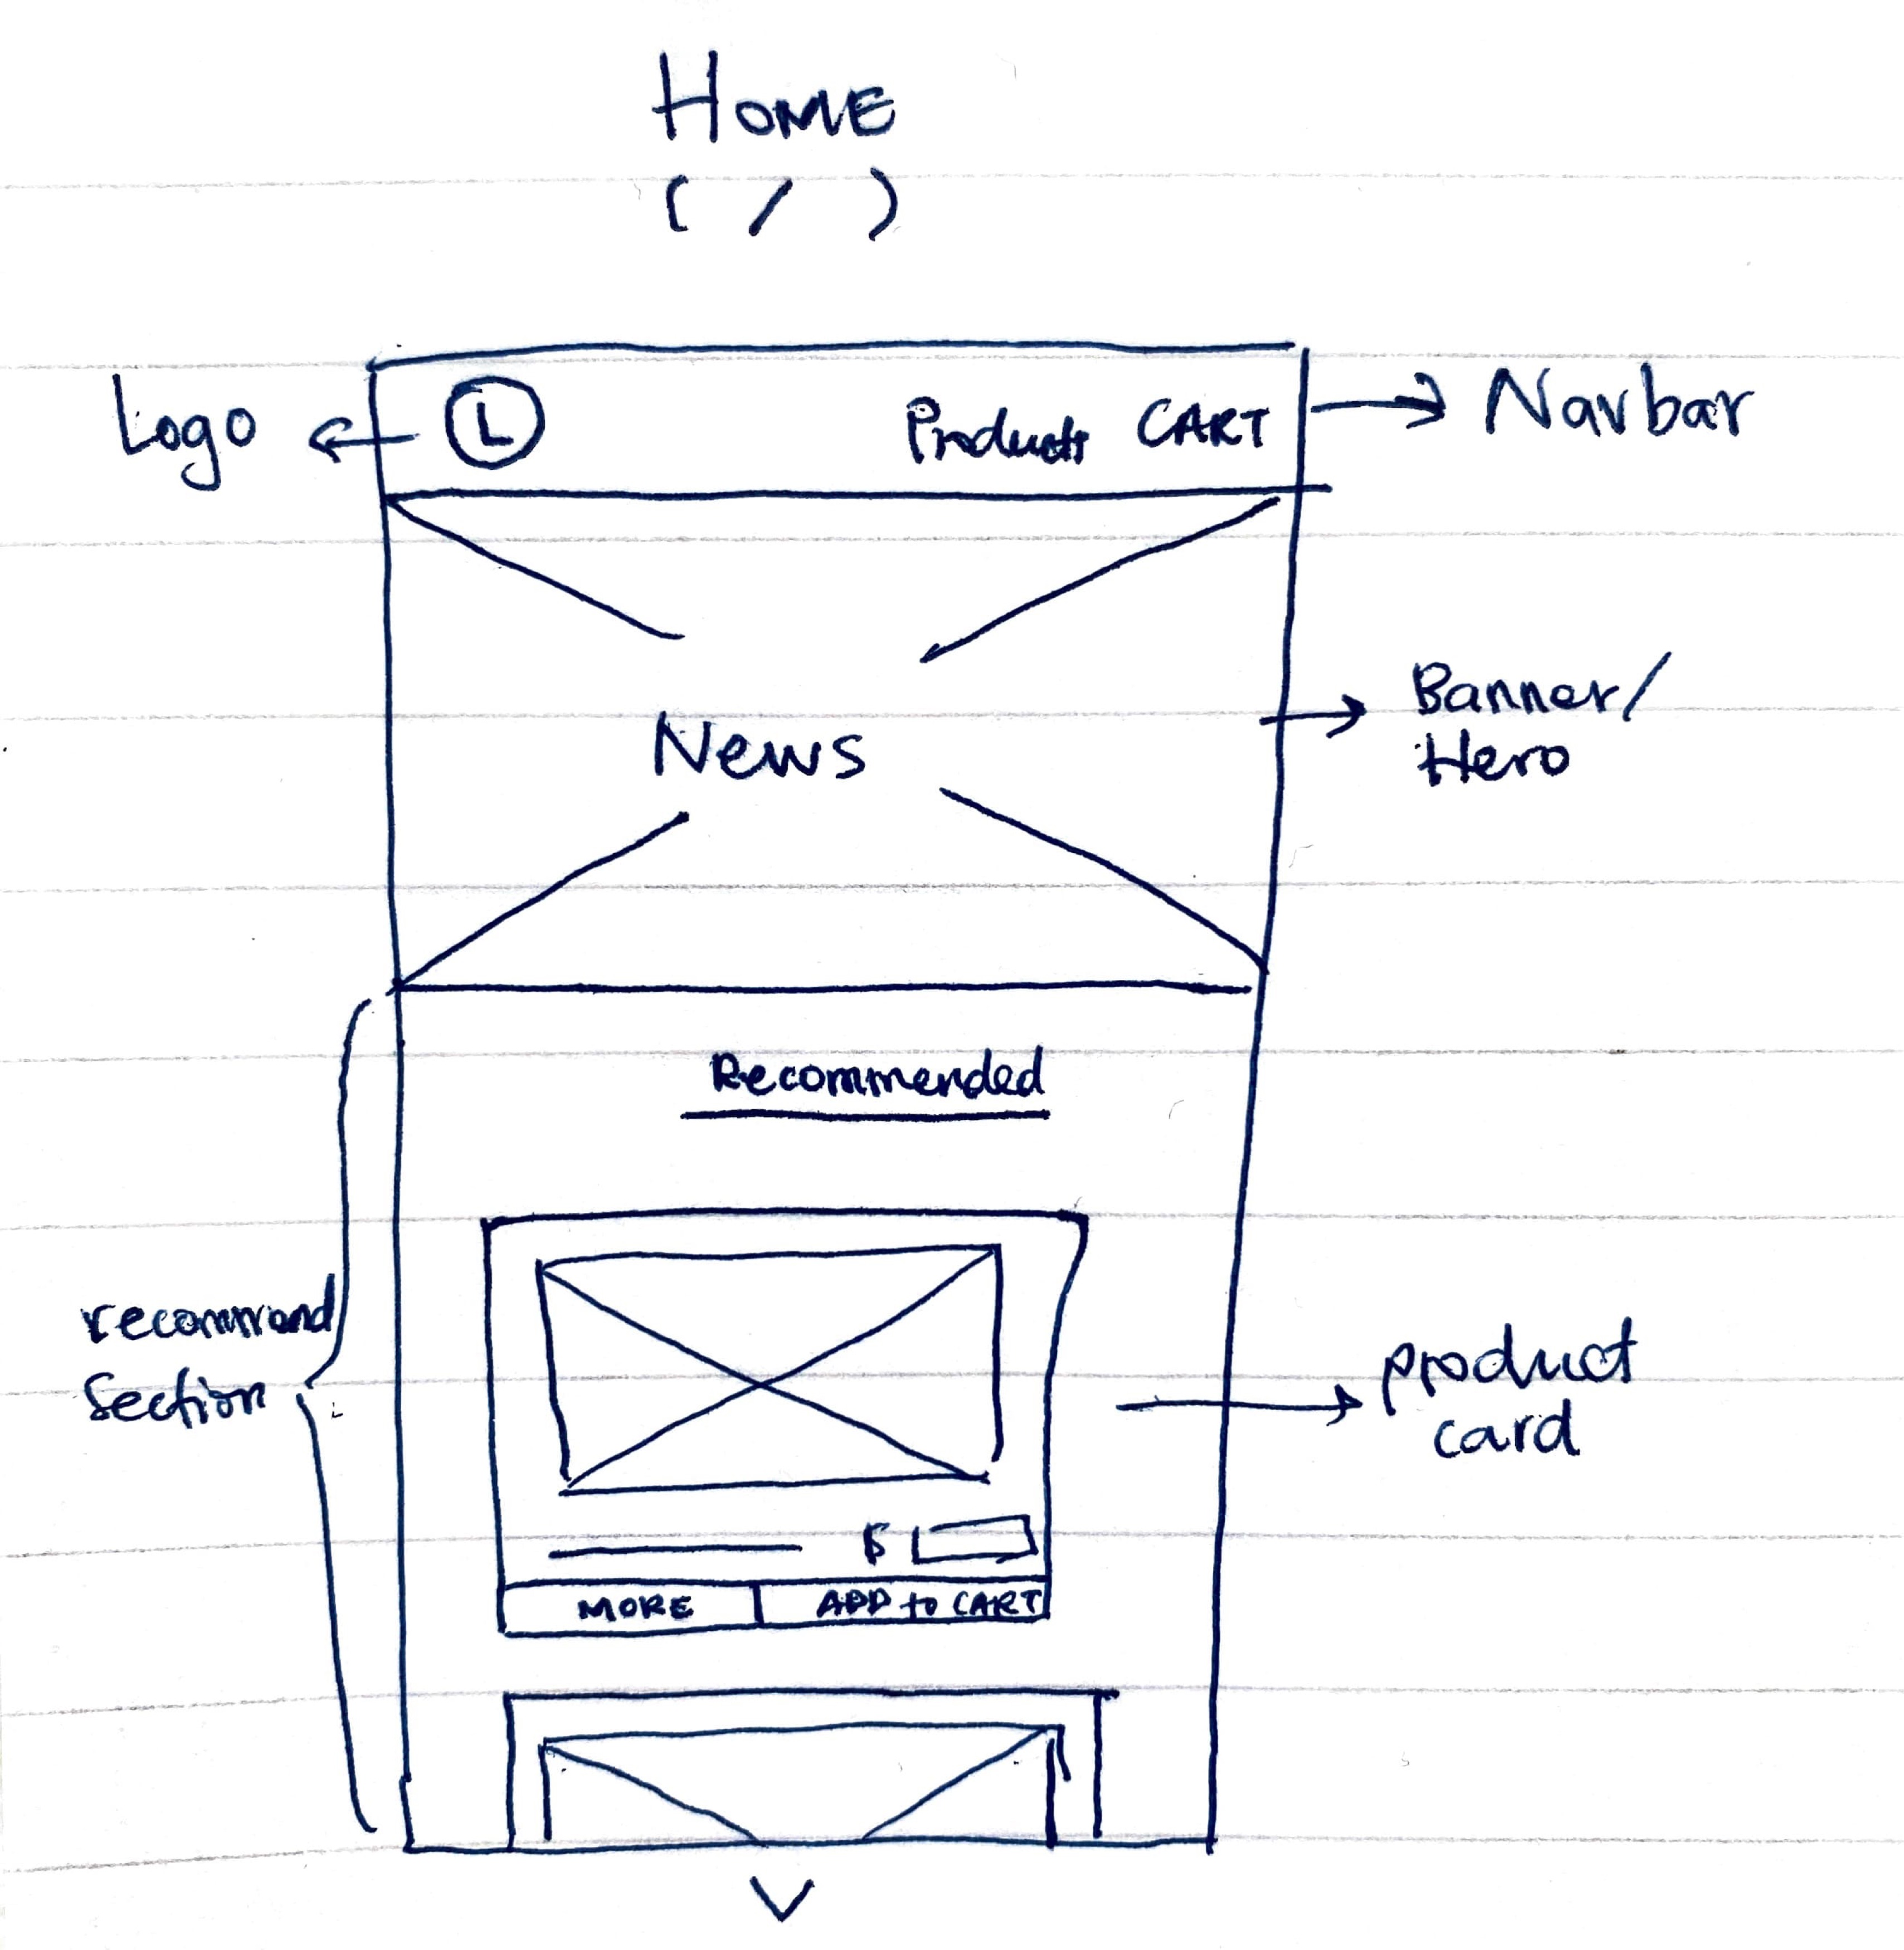 HOME
( / )
Logo
L
Products CART
Navbar
News
Banner/
Hero
Recommended
recommend
section
product
card
$
MORE
ADD to CART